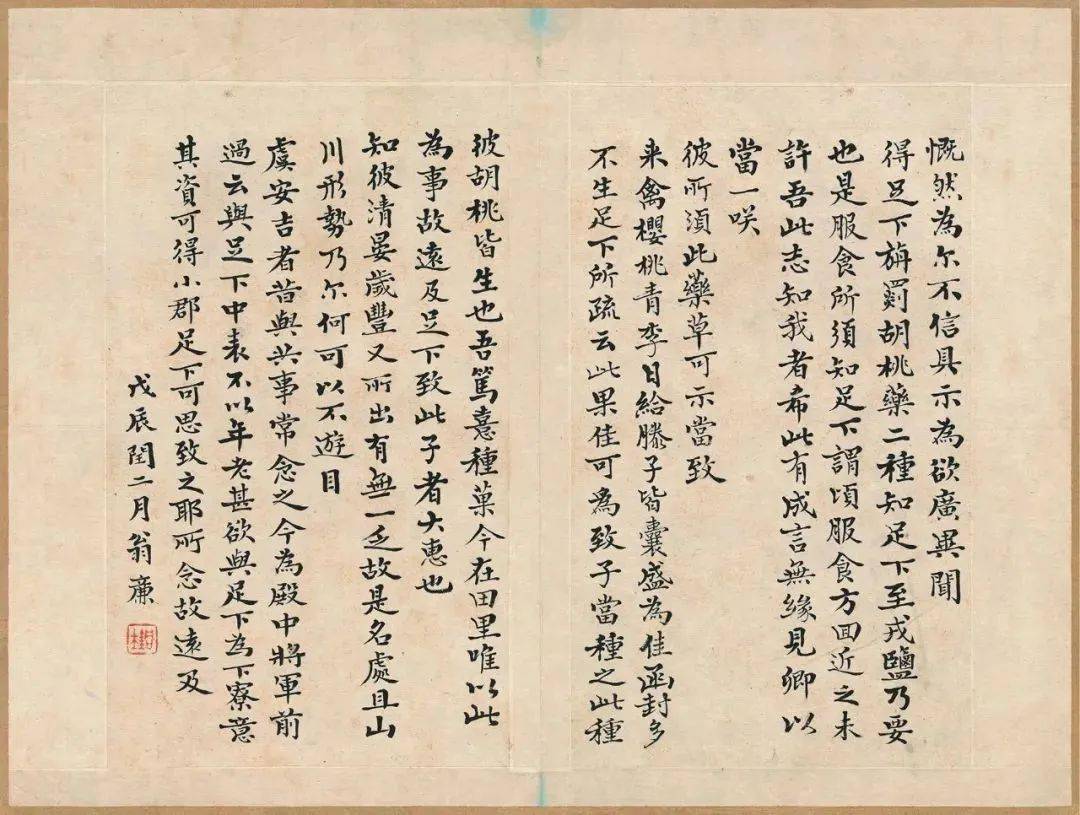 慨然為尔不信具示為欲廣異聞
得足下旃罽胡桃藥二種知足下至戎鹽乃要
也是服食所須知足下謂頃服食方回近之未
許吾此志知我者希此有成言無緣見卿以
當一咲
彼所須此藥草可示當致
来禽櫻桃青李日給滕子皆囊盛為佳函封多
不生足下所疏云此果佳可為致子當種之此種
彼胡桃皆生也吾篤憙種菓今在田里唯以此
為事故遠及足下致此子者大惠也
知彼清晏歲豐又所出有無一乏故是名處且山
川形勢乃尔何可以不遊目
虞安吉者昔與共事常念之今為殿中將軍前
過云與足下中表不以年老甚欲與足下為下寮意
其資可得小郡足下可思致之耶所念故遠及
戊辰閏二月翁廉